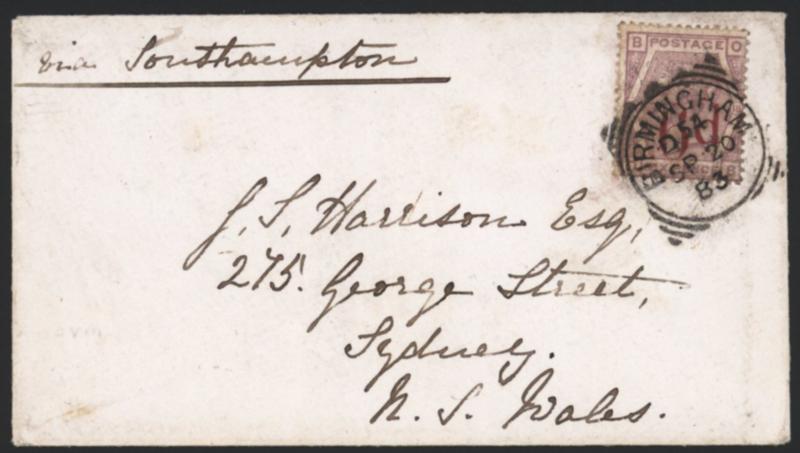 via Southampton
B POSTAGE O
6d
B
BIRMINGHAM
D54
SP 20
83
J. S. Harrison Esq,
275. George Street,
Sydney.
N. S. Wales.